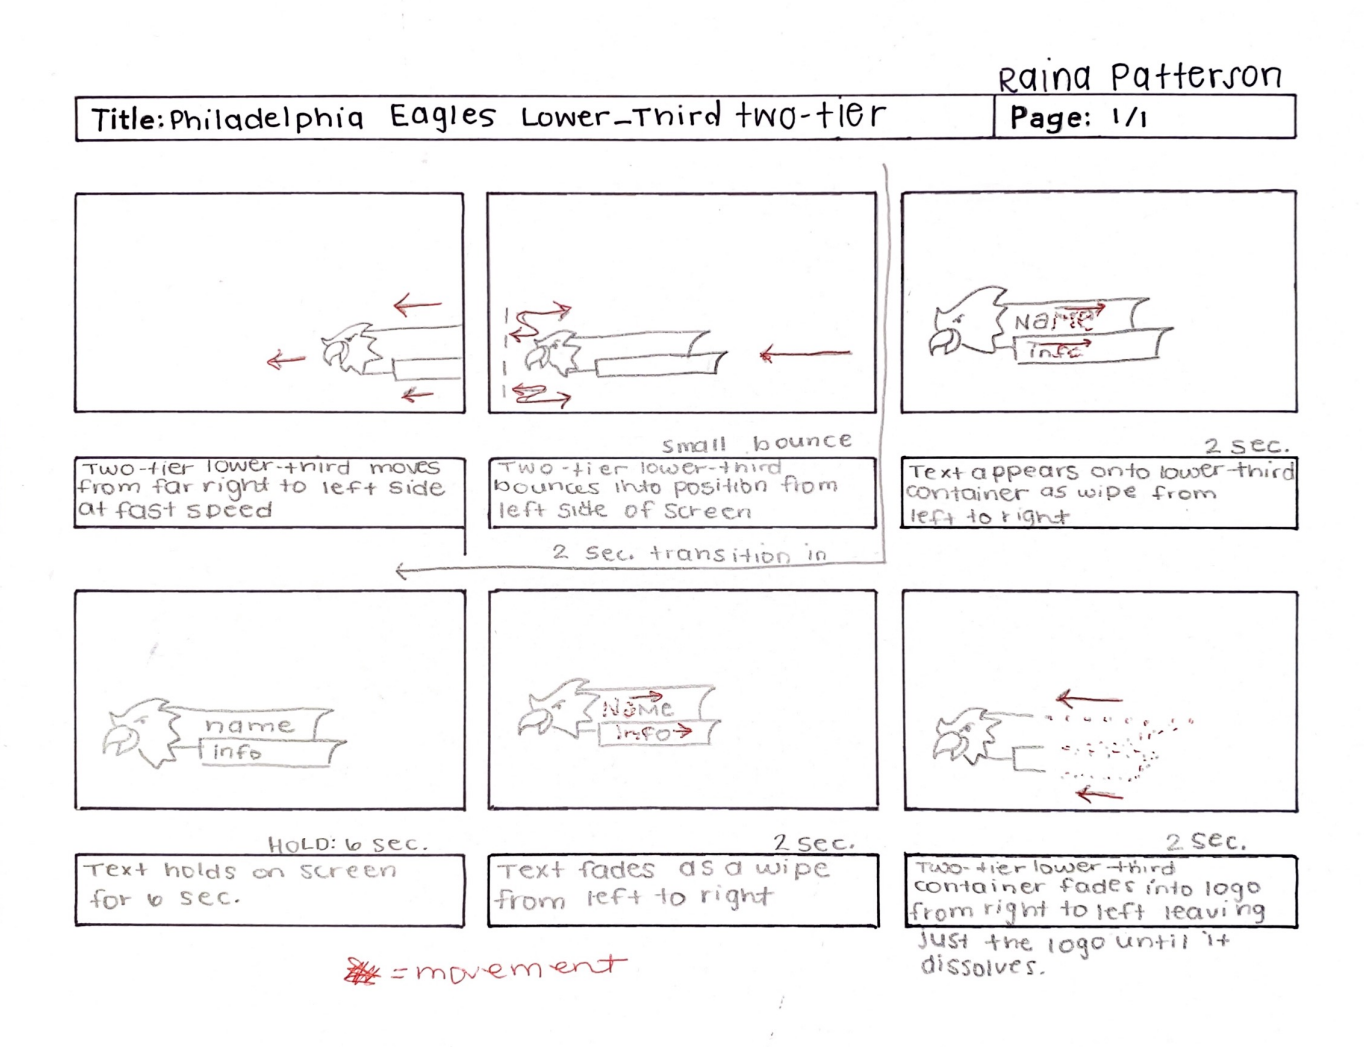 Raina Patterson
Title: Philadelphia Eagles Lower-Third two-tier
Page: 1/1
Name
info
small bounce
2 sec.
Two-tier lower-third moves
from far right to left side
at fast speed
Two-tier lower-third
bounces into position from
left side of screen
Text appears onto lower-third
container as wipe from
left to right
2 sec. transition in
name
info
Name
info
HOLD: 6 sec.
2 sec.
2 sec.
Text holds on screen
for 6 sec.
Text fades as a wipe
from left to right
Two-tier lower-third
container fades into logo
from right to left leaving
just the logo until it
dissolves.
= movement